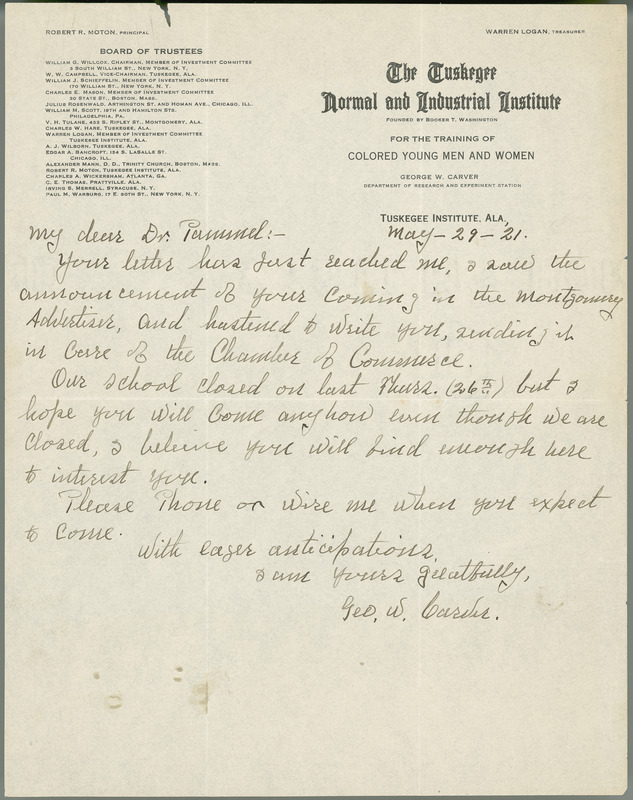 ROBERT R. MOTON, PRINCIPAL
WARREN LOGAN, TREASURER
BOARD OF TRUSTEES
WILLIAM G. WILLCOX, CHAIRMAN, MEMBER OF INVESTMENT COMMITTEE
3 SOUTH WILLIAM ST., NEW YORK, N. Y.
W. W. CAMPBELL, VICE-CHAIRMAN, TUSKEGEE, ALA.
WILLIAM J. SCHIEFFELIN, MEMBER OF INVESTMENT COMMITTEE
170 WILLIAM ST., NEW YORK, N. Y.
CHARLES E. MASON, MEMBER OF INVESTMENT COMMITTEE
30 STATE ST., BOSTON, MASS.
JULIUS ROSENWALD, ARTHINGTON ST. AND HOMAN AVE., CHICAGO, ILL.
WILLIAM M. SCOTT, 19TH AND HAMILTON STS.
PHILADELPHIA, PA.
V. H. TULANE, 453 S. RIPLEY ST., MONTGOMERY, ALA.
CHARLES W. HARE, TUSKEGEE, ALA.
WARREN LOGAN, MEMBER OF INVESTMENT COMMITTEE
TUSKEGEE INSTITUTE, ALA.
A. J. WILBORN, TUSKEGEE, ALA.
EDGAR A. BANCROFT, 134 S. LASALLE ST.
CHICAGO, ILL.
ALEXANDER MANN, D. D., TRINITY CHURCH, BOSTON, MASS.
ROBERT R. MOTON, TUSKEGEE INSTITUTE, ALA.
CHARLES A. WICKERSHAM, ATLANTA, GA.
C. E. THOMAS, PRATTVILLE, ALA.
IRVING S. MERRELL, SYRACUSE, N. Y.
PAUL M. WARBURG, 17 E. 80TH ST., NEW YORK, N. Y.
The Tuskegee
Normal and Industrial Institute
FOUNDED BY BOOKER T. WASHINGTON
FOR THE TRAINING OF
COLORED YOUNG MEN AND WOMEN
GEORGE W. CARVER
DEPARTMENT OF RESEARCH AND EXPERIMENT STATION
TUSKEGEE INSTITUTE, ALA,
May-29-21.
My dear Dr. Pammel:-
Your letter has just reached me, I saw the
announcement of your coming in the Montgomery
Advertiser, and hastened to write you, sending it
in care of the Chamber of Commerce.
Our school closed on last Thurs. (26th) but I
hope you will come anyhow even though we are
closed, I believe you will find enough here
to interest you.
Please Phone or wire me when you expect
to come.
With eager anticipations,
I am yours greatfully,
Geo. W. Carver.